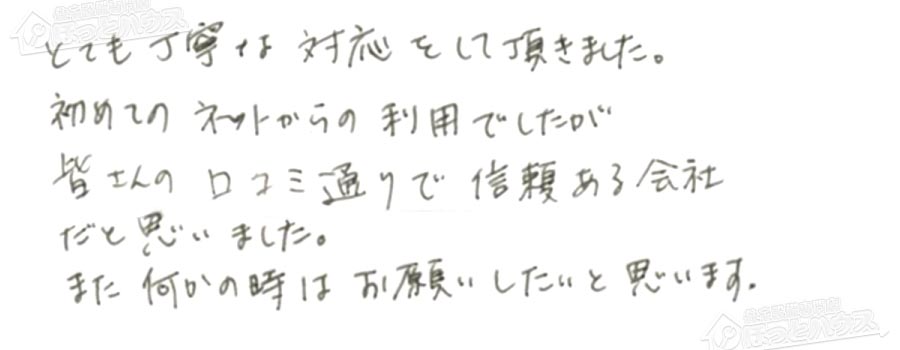 とても丁寧な対応をして頂きました。
初めてのネットからの利用でしたが
皆さんの口コミ通りで信頼ある会社
だと思いました。
また何かの時はお願いしたいと思います.
ほっとハウス
ほっとハウス